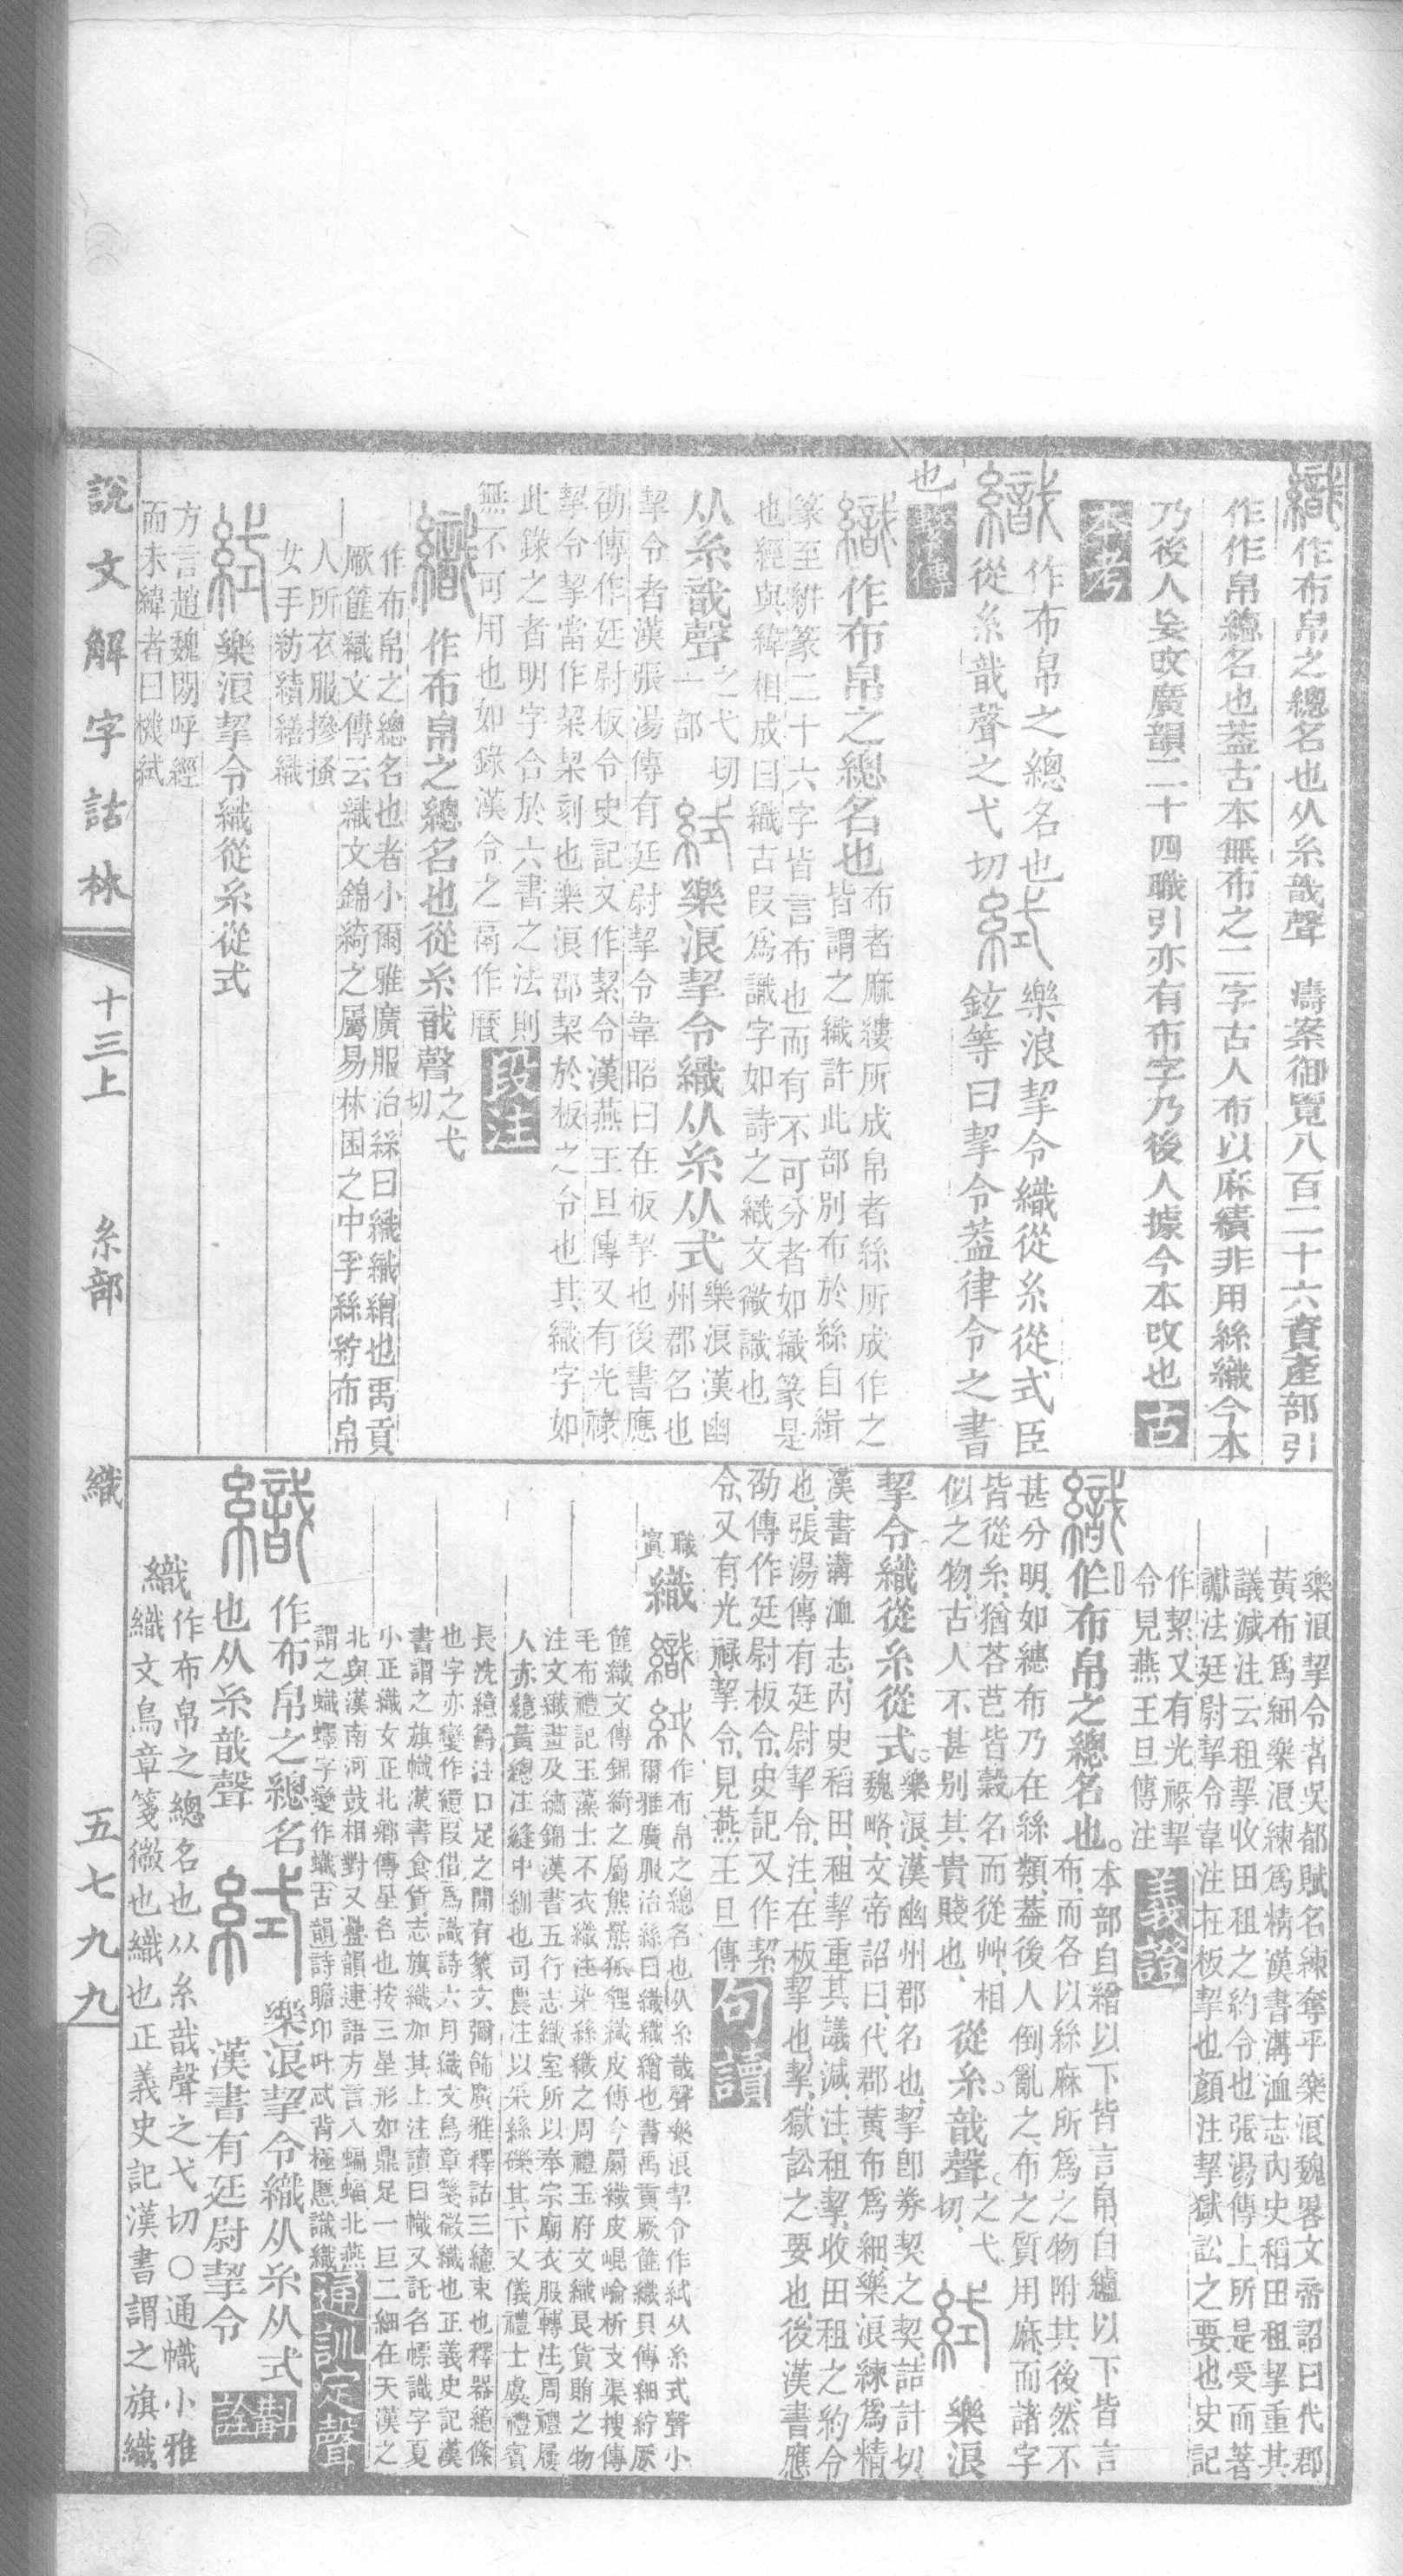 織作布帛之總名也从糸戠聲　濤案御覽八百二十六資產部引
作作帛總名也葢古本無布之二字古人布以麻績非用絲織今本
乃後人妄改廣韻二十四職引亦有布字乃後人據今本改也 古
本考
織 作布帛之總名也
從糸戠聲之弋切
樂浪挈令織從糸從式臣
鉉等曰挈令葢律令之書
也 繫傳
織作布帛之總名也
布者麻縷所成帛者絲所成作之
皆謂之織許此部別布於絲自緝
篆至絣篆二十六字皆言布也而有不可分者如織篆是
也經與緯相成曰織古叚爲識字如詩之織文微識也
从糸戠聲
之弋切
一部
樂浪挈令織从糸从式
樂浪漢幽
州郡名也
挈令者漢張湯傳有廷尉挈令韋昭曰在板挈也後書應
劭傳作廷尉板令史記又作絜令漢燕王旦傳又有光祿
挈令挈當作栔栔刻也樂浪郡栔於板之令也其織字如
此錄之者明字合於六書之法則
無不可用也如錄漢令之鬲作㽁 段注
織 作布帛之總名也從糸戠聲
之弋
切
作布帛之總名也者小爾雅廣服治絲曰織織繒也禹貢
厥篚織文傳云織文錦綺之屬易林困之中孚絲紵布帛
人所衣服摻摻
女手紡績繕織
樂浪挈令織從糸從式
方言趙魏閒呼經
而未緯者曰機䋙
樂浪挈令者吳都賦名練奪乎樂浪魏畧文帝詔曰代郡
黃布爲細樂浪練爲精漢書溝洫志內史稻田租挈重其
議減注云租挈收田租之約令也張湯傳上所是受而著
讞法廷尉挈令韋注在板挈也顏注挈獄訟之要也史記
作絜又有光祿挈
令見燕王旦傳注 義證
織 作布帛之總名也。
本部自繒以下皆言帛自纑以下皆言
布，而各以絲麻所爲之物附其後，然不
甚分明，如繐布乃在絲類，葢後人倒亂之，布之質用麻，而諸字
皆從糸，猶荅芑皆穀名而從艸，相
似之物，古人不甚別其貴賤也。
從糸戠聲。
之弋
切，
樂浪
挈令織從糸從式。
樂浪，漢幽州郡名也，挈卽券契之契，詰計切，
魏略，文帝詔曰，代郡黃布爲細，樂浪練爲精，
漢書溝洫志，內史稻田，租挈重，其議減，注，租挈，收田租之約令
也，張湯傳有廷尉挈令，注，在板挈也，挈，獄訟之要也，後漢書應
劭傳作廷尉板令，史記又作絜
令，又有光祿挈令，見燕王旦傳 句讀
職
實
織 作布帛之總名也从糸戠聲樂浪挈令作䋙从糸式聲小
爾雅廣服治絲曰織織繒也書禹貢厥篚織貝傳細紵厥
篚織文傳錦綺之屬熊羆狐貍織皮傳今罽織皮崐崘析支渠搜傳
毛布禮記玉藻士不衣織注染絲織之周禮玉府文織良貨賄之物
注文織畫及繡錦漢書五行志織室所以奉宗廟衣服轉注周禮屨
人赤繶黃繶注縫中紃也司農注以采絲礫其下又儀禮士虞禮賓
長洗繶爵注口足之閒有篆文彌飾廣雅釋詁三繶束也釋器繶絛
也字亦變作繶叚借爲識詩六月織文鳥章箋徽織也正義史記漢
書謂之旗幟漢書食貨志旗織加其上注讀曰幟又託名幖識字夏
小正織女正北鄉傳星名也按三星形如鼎足一巨二細在天漢之
北與漢南河鼓相對又疊韻連語方言入蝙蝠北燕
謂之蟙䘃字變作蟙古韻詩瞻卬叶忒背極慝識織 通訓定聲
織 作布帛之總名
也从糸戠聲
樂浪挈令織从糸从式
漢書有廷尉挈令 斠
詮
織作布帛之總名也从糸戠聲之弋切○通幟小雅
織織文鳥章箋微也織也正義史記漢書謂之旗織
說文解字詁林　十三上　糸部　織　五七九九